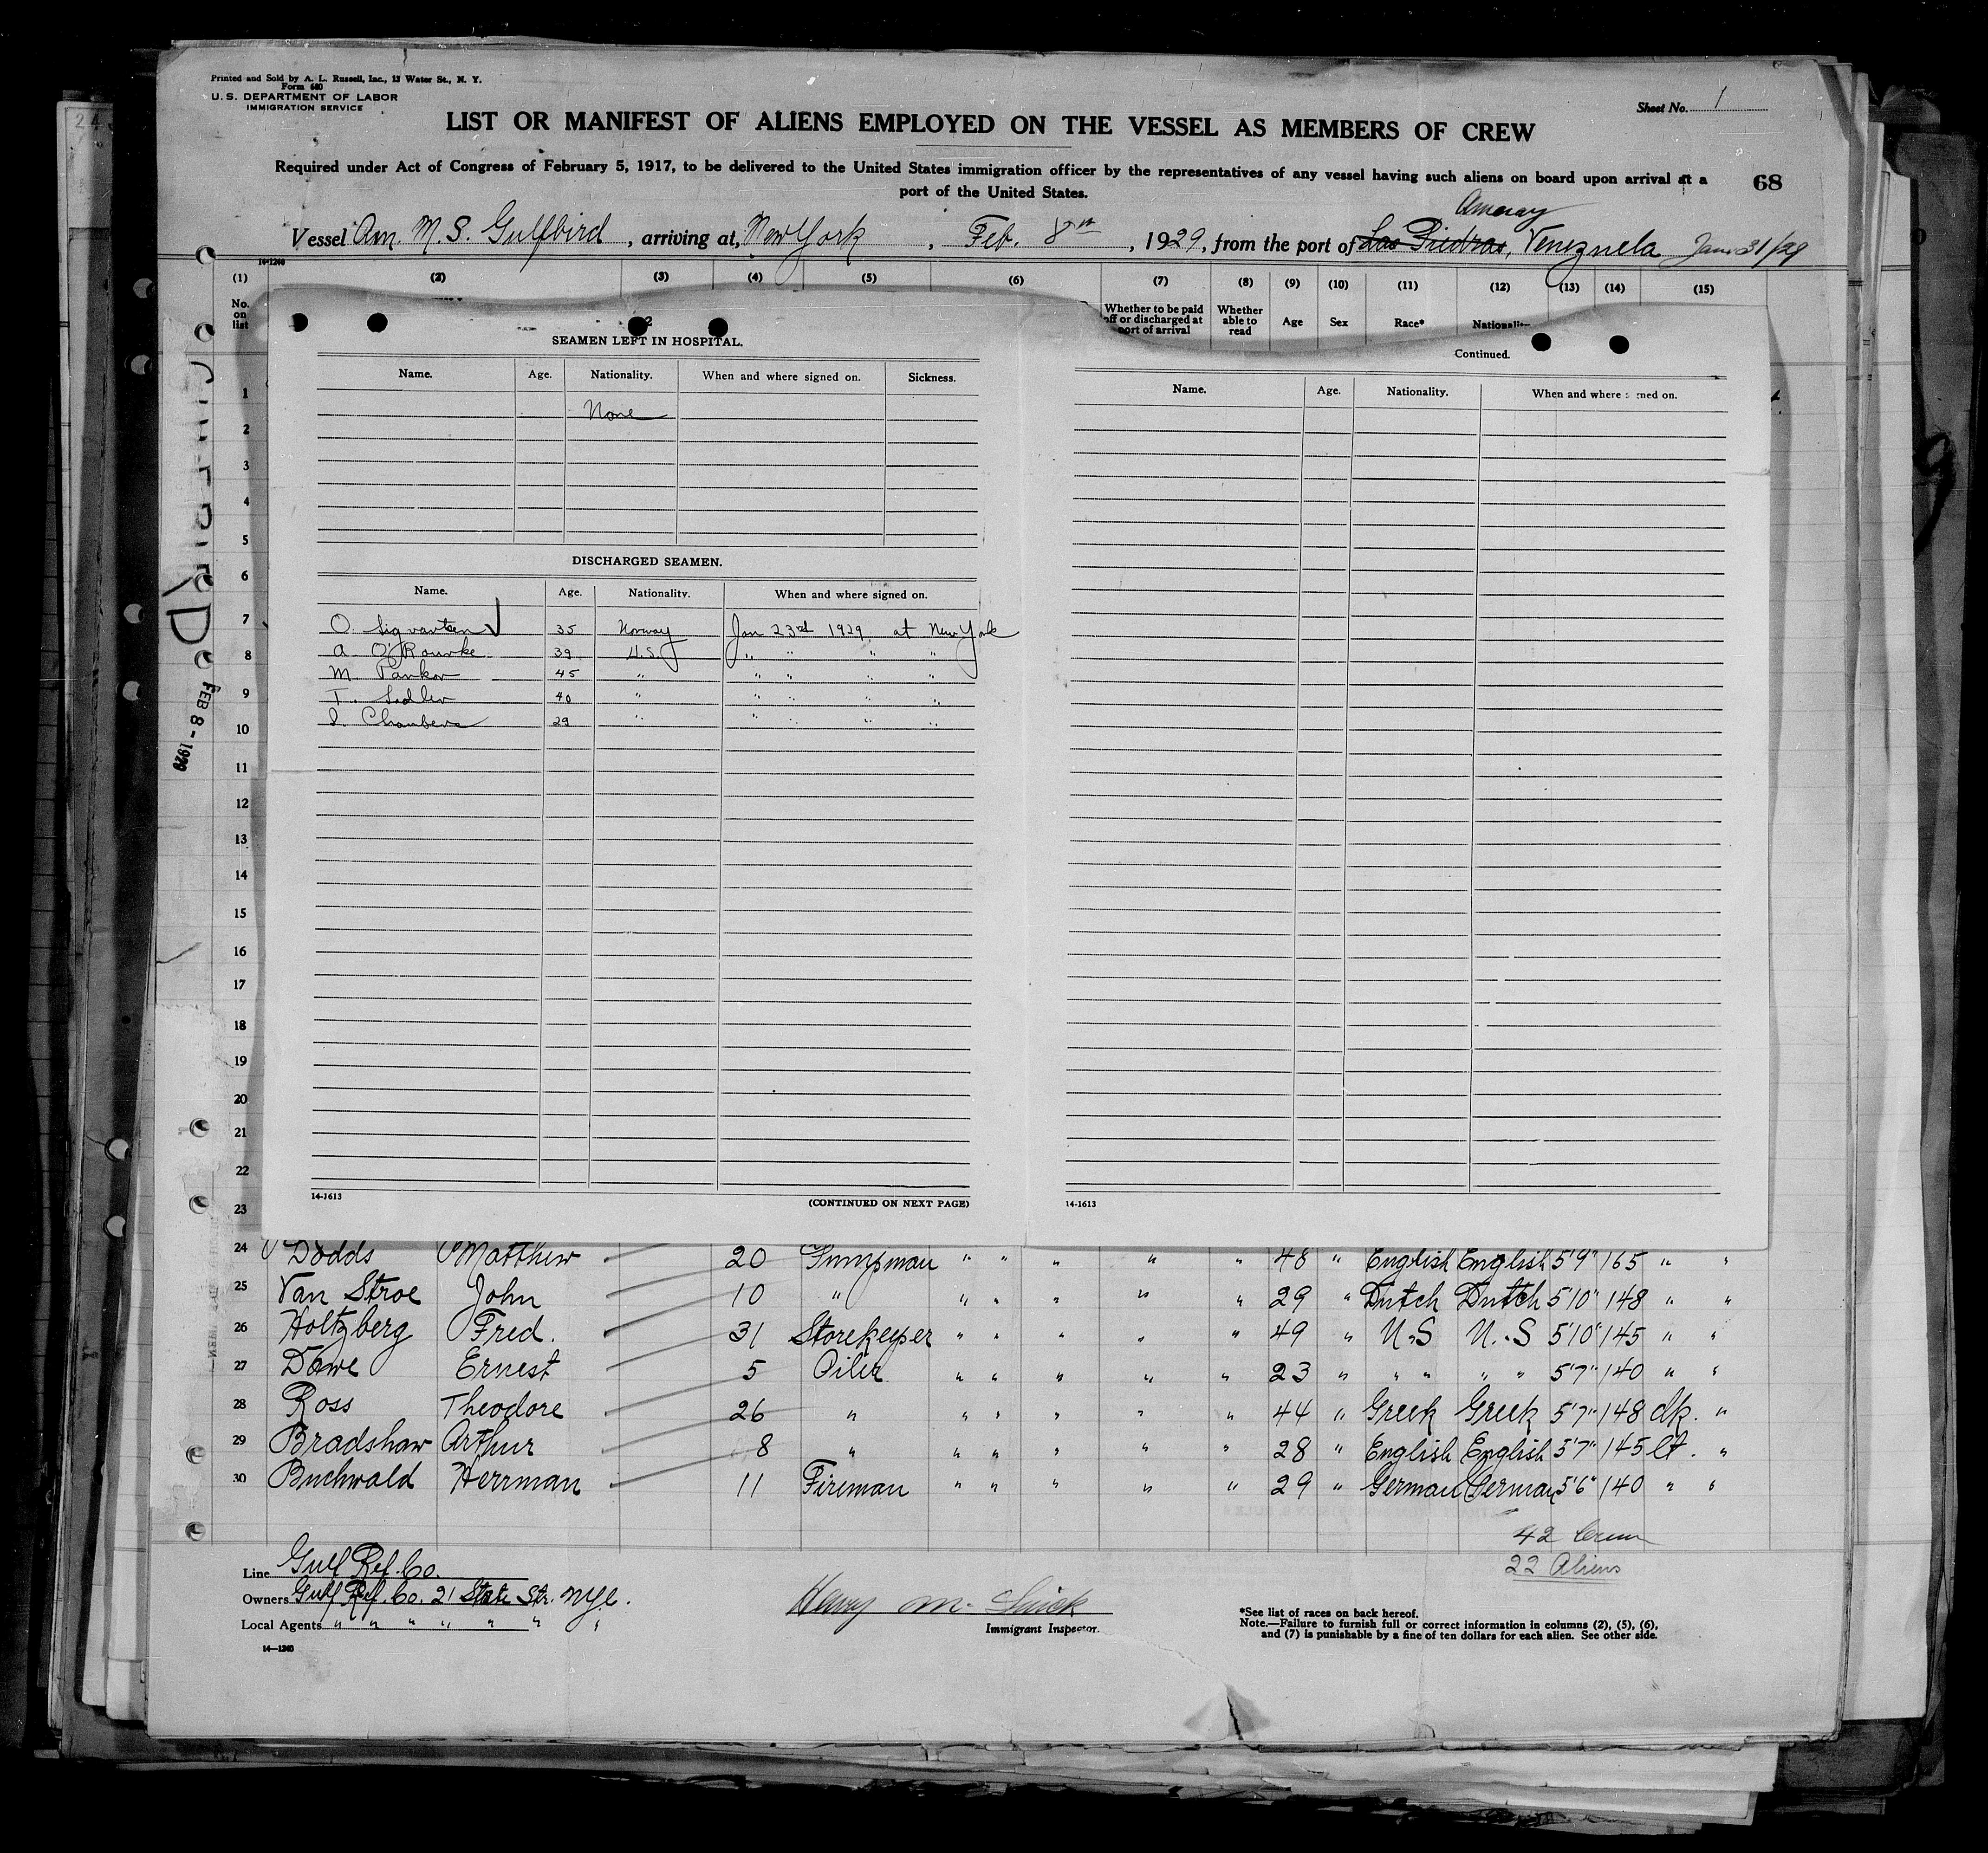 Printed and Sold by A. L. Russell, Inc., 13 Water St., N. Y.
Form 680
U. S. DEPARTMENT OF LABOR
IMMIGRATION SERVICE
Sheet No. 1
LIST OR MANIFEST OF ALIENS EMPLOYED ON THE VESSEL AS MEMBERS OF CREW
Required under Act of Congress of February 5, 1917, to be delivered to the United States immigration officer by the representatives of any vessel having such aliens on board upon arrival at a
port of the United States.
68
Amuay
Vessel Am. M. S. Gulfbird, arriving at, New York, Feb. 8th, 1929, from the port of Las Piedras, Venezuela Jan. 31/29
14-1240
(1) (2) (3) (4) (5) (6) (7) (8) (9) (10) (11) (12) (13) (14) (15)
No. on list Whether to be paid off or discharged at port of arrival Whether able to read Age Sex Race* Nationality
SEAMEN LEFT IN HOSPITAL.
Name. Age. Nationality. When and where signed on. Sickness.
None
DISCHARGED SEAMEN.
Name. Age. Nationality. When and where signed on.
O. Sigvartsen 35 Norway Jan 23rd 1929 at New York
A. O'Rourke 39 U.S. " " " "
M. Pankov 45 " " " " "
T. Sadler 40 " " " " "
Chambers 29 " " " " "
14-1613
(CONTINUED ON NEXT PAGE)
Continued.
Name. Age. Nationality. When and where signed on.
14-1613
1
2
3
4
5
6
7
8
9
10
11
12
13
14
15
16
17
18
19
20
21
22
23
FEB 8 - 1929
24 Dodds Matthew 20 Pumpman " " " " " 48 " English English 5'9" 165 " "
25 Van Stroe John 10 " " " " " " 29 " Dutch Dutch 5'10" 148 " "
26 Holtzberg Fred. 31 Storekeeper " " " " " 49 " U.S U.S 5'10" 145 " "
27 Dowe Ernest 5 Oiler " " " " " 23 " " " " " 5'7" 140 " "
28 Ross Theodore 26 " " " " " " 44 " Greek Greek 5'7" 148 dk. "
29 Bradshaw Arthur 8 " " " " " " 28 " English English 5'7" 145 lt. "
30 Buchwald Herrman 11 Fireman " " " " " 29 " German German 5'6" 140 " "
42 Crew
22 Aliens
Line Gulf Ref. Co.
Owners Gulf Ref. Co. 21 State Str. NYC.
Local Agents " " " " " " "
14-1240
Henry M.
Immigrant Inspector.
*See list of races on back hereof.
Note.—Failure to furnish full or correct information in columns (2), (5), (6),
and (7) is punishable by a fine of ten dollars for each alien. See other side.